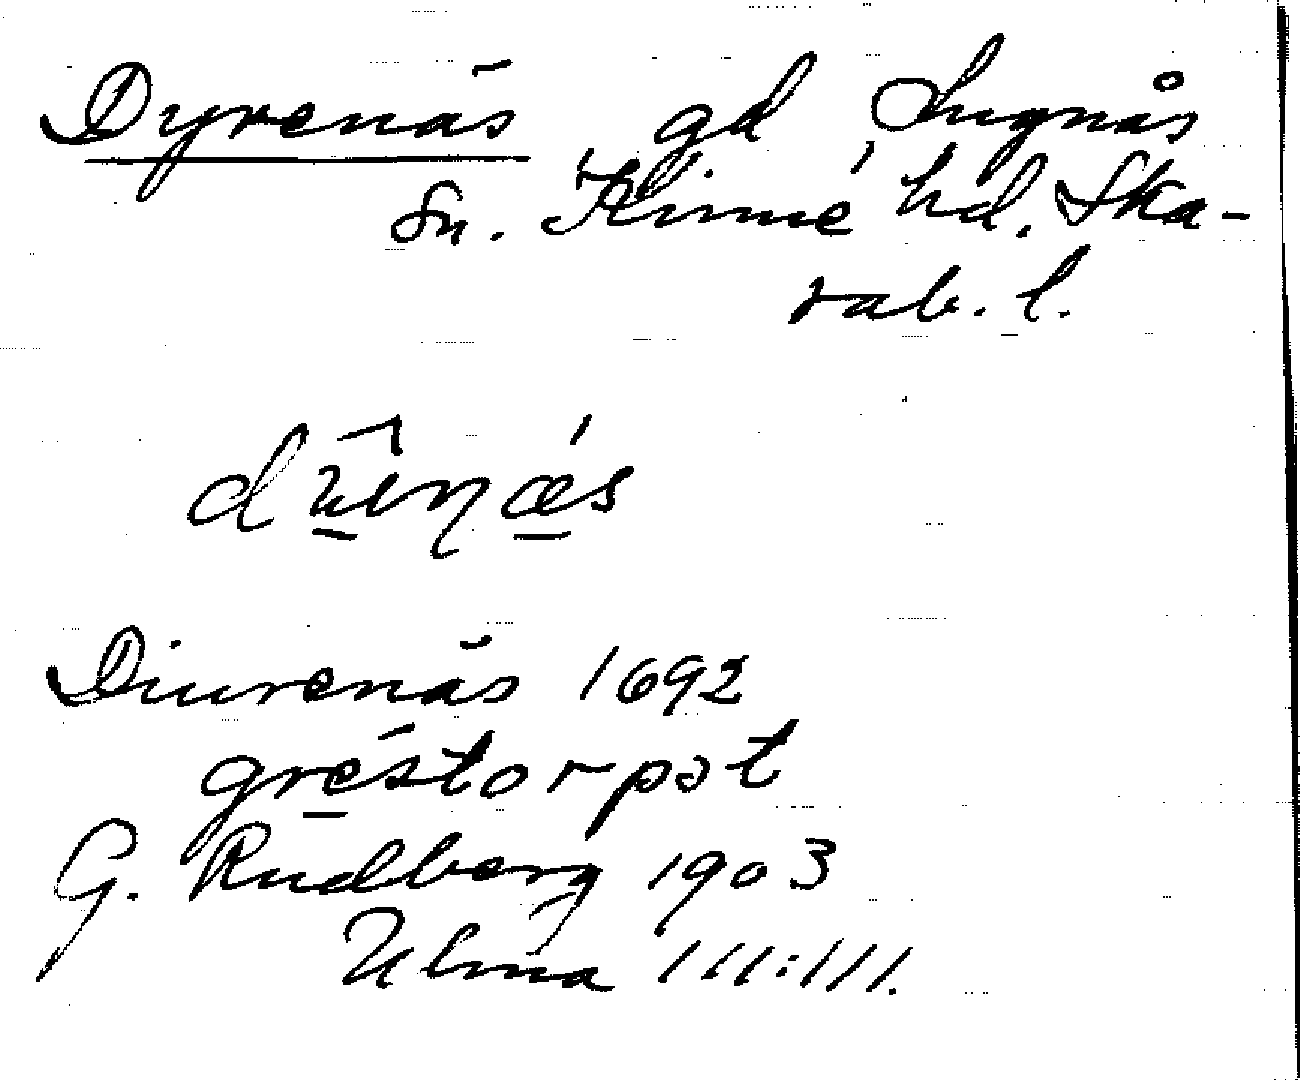 Dyrenäs gd Lugnås
sn. Kinne hd. Ska-
rab. l.
Diurenäs 1692
gréstorpət
G. Rudberg 1903
Ulma 111:111.